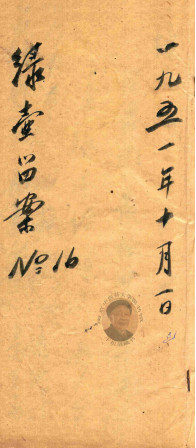 一九五一年十月一日
绿壶留案
No 16